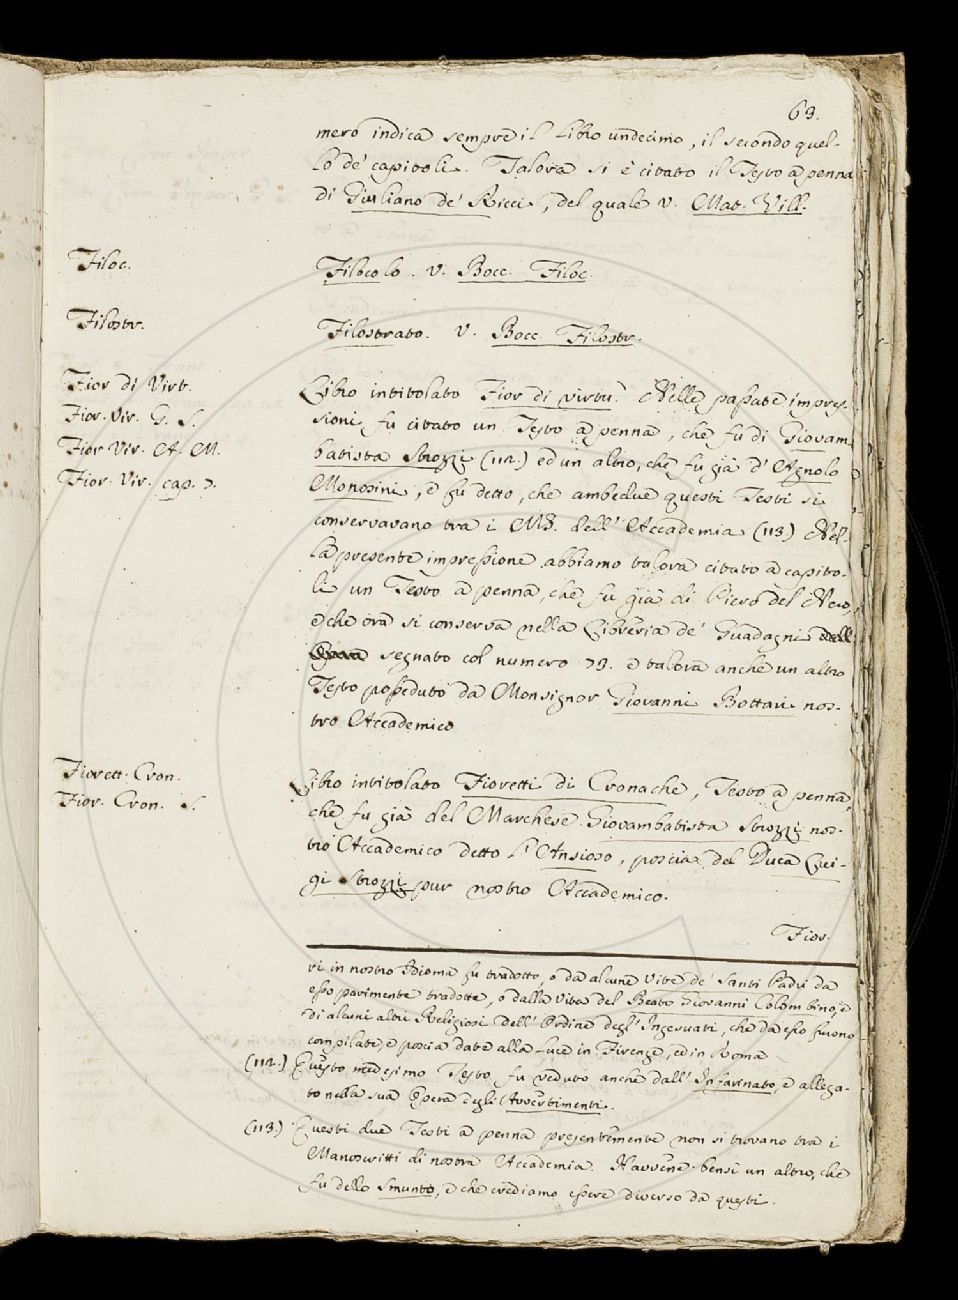 63.
mero indica sempre il Libro undecimo, il secondo quel-
lo de' capitoli. Talora si è citato il Testo a penna
di Giuliano de' Ricci, del quale v. Mat. Vill.
Filoc.
Filocolo. v. Bocc. Filoc.
Filostr.
Filostrato. v. Bocc. Filostr.
Fior di Virt.
Fior. Vir. G. S.
Fior Vir. A. M.
Fior. Vir. cap. 7.
Libro intitolato Fior di virtù. Nelle passate impres-
sioni fu citato un Testo a penna, che fu di Giovam
batista Strozzi (112.) ed un altro, che fu già d' Agnolo
Monosini, e fu detto, che ambedue questi Testi si
conservavano tra i MS. dell' Accademia (113.) Nel-
la presente impressione abbiamo talora citato a capito-
li un Testo a penna, che fu già di Piero del Nero,
e che ora si conserva nella Libreria de' Guadagni
segnato col numero 79. e talora anche un altro
Testo posseduto da Monsignor Giovanni Bottari nos-
tro Accademico
Fiorett. Cron.
Fior. Cron. S.
Libro intitolato Fioretti di Cronache, Testo a penna,
che fu già del Marchese Giovambatista Strozzi nos-
tro Accademico detto l' Ansioso, poscia del Duca Lui-
gi Strozzi pur nostro Accademico.
Fior.
ri in nostro Idioma fu tradotto, o da alcune Vite de' Santi Padri da
esso parimente tradotte, o dalla Vita del Beato Giovanni Colombino, e
di alcuni altri Religiosi dell' Ordine degl' Ingesuati, che da esso furono
compilate, e poscia date alla Luce in Firenze, ed in Roma
(112.) Questo medesimo Testo fu veduto anche dall' Infarinato, e allega-
to nella sua Opera degli Avvertimenti.
(113.) Questi due Testi a penna presentemente non si trovano tra i
Manoscritti di nostra Accademia. Havvene bensì un altro, che
fu dello Smunto, e che crediamo essere diverso da questi.